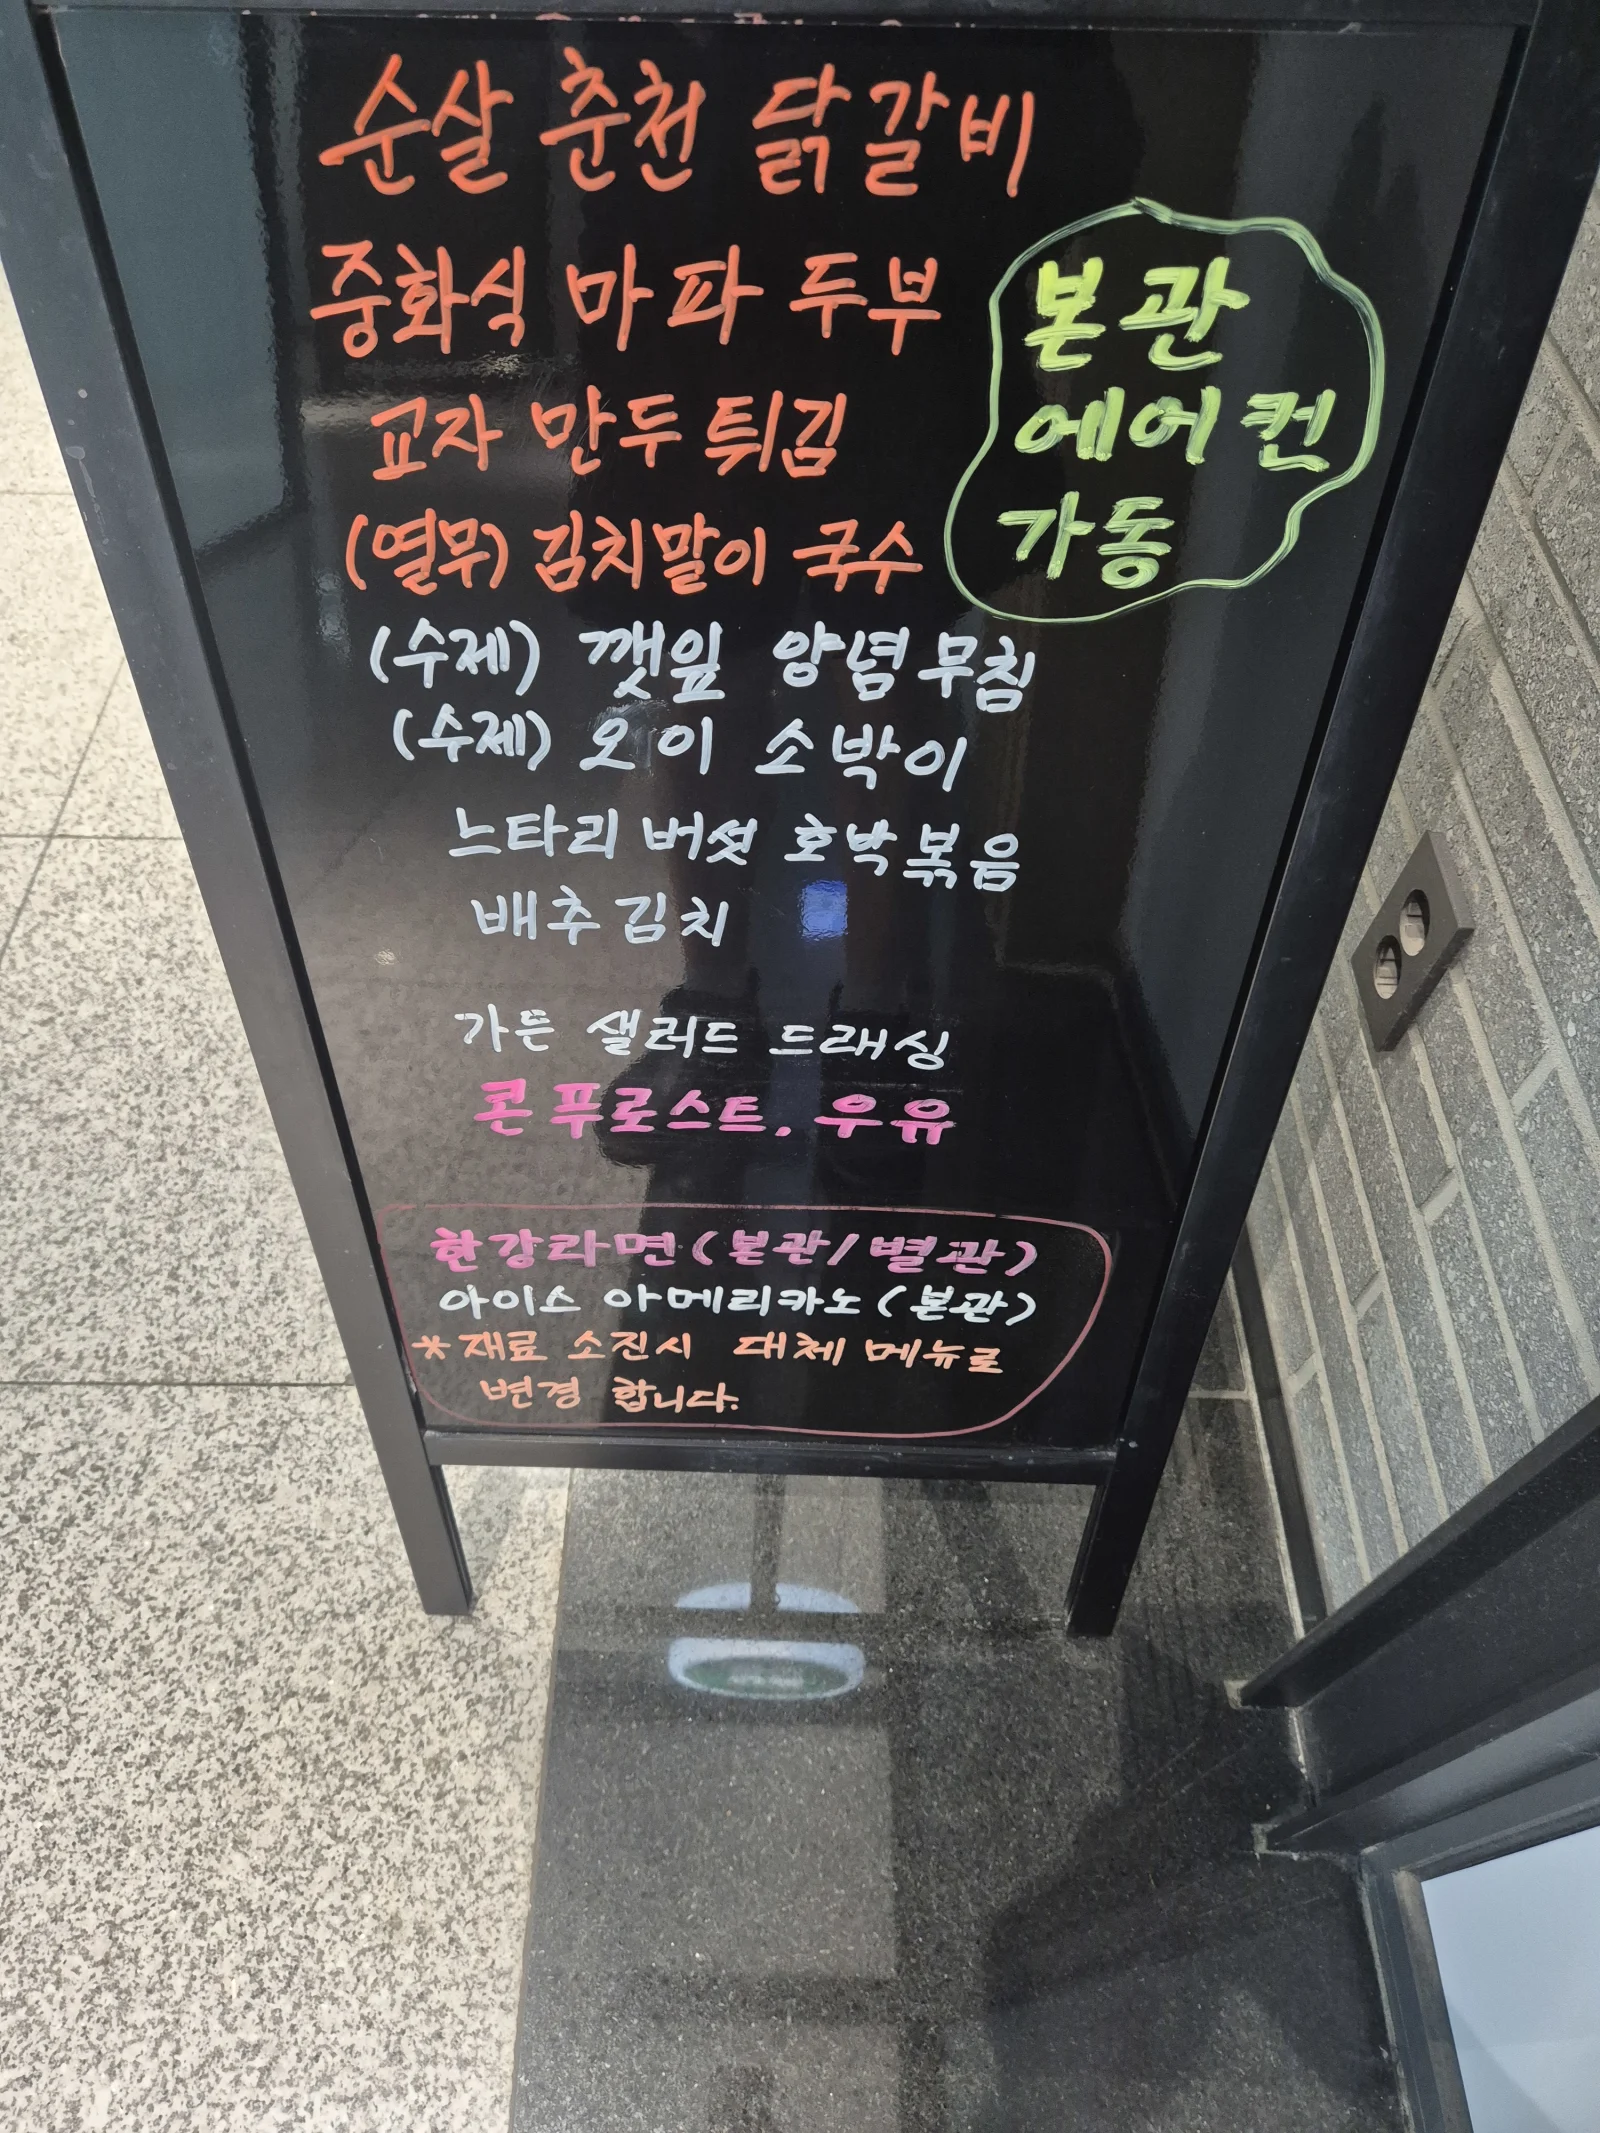 순살 춘천 닭갈비
중화식 마파 두부
교자 만두 튀김
(열무) 김치말이 국수
본관
에어컨
가동
(수제) 깻잎 양념무침
(수제) 오이 소박이
느타리 버섯 호박볶음
배추김치
가든 샐러드 드래싱
콘푸로스트. 우유
한강라면 (본관/별관)
아이스 아메리카노 (본관)
*재료 소진시 대체 메뉴로
변경 합니다.